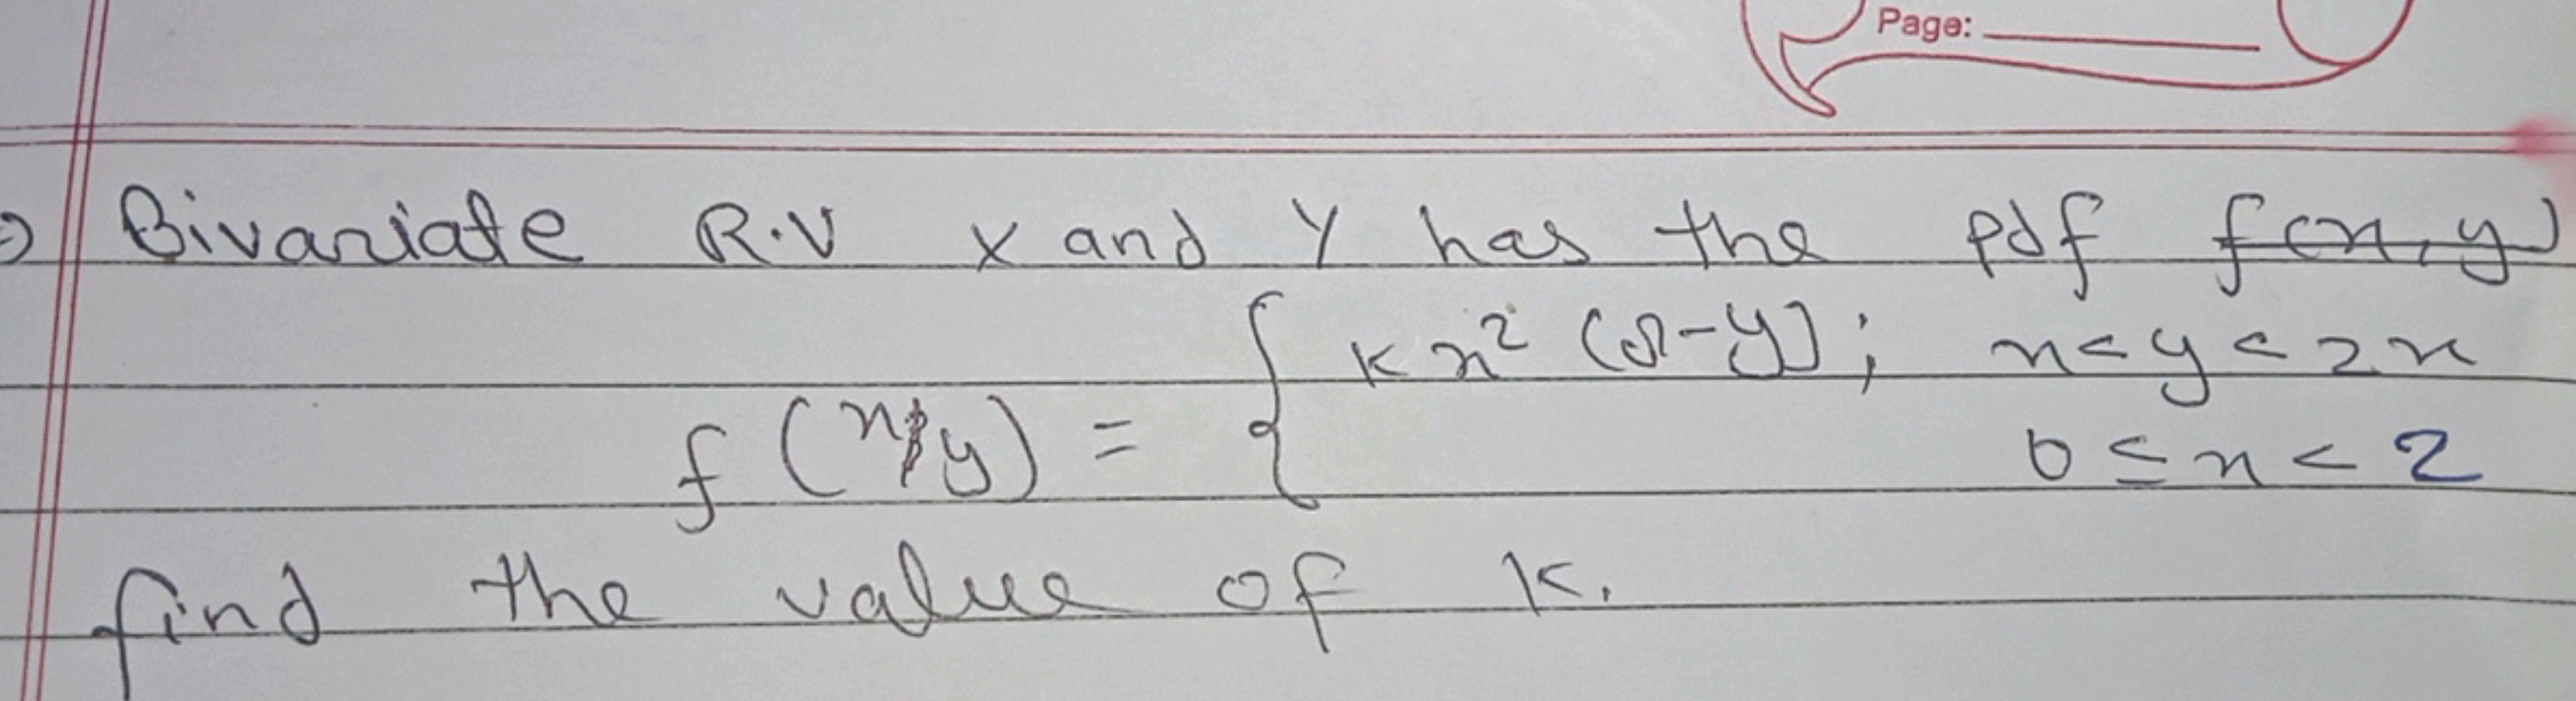 Page:
Bivariate R.V X and Y has the pdf f(x,y)
Kx² (8-y); x<y<2x
f(x,y) = {
0≤x<2
find the value of K.